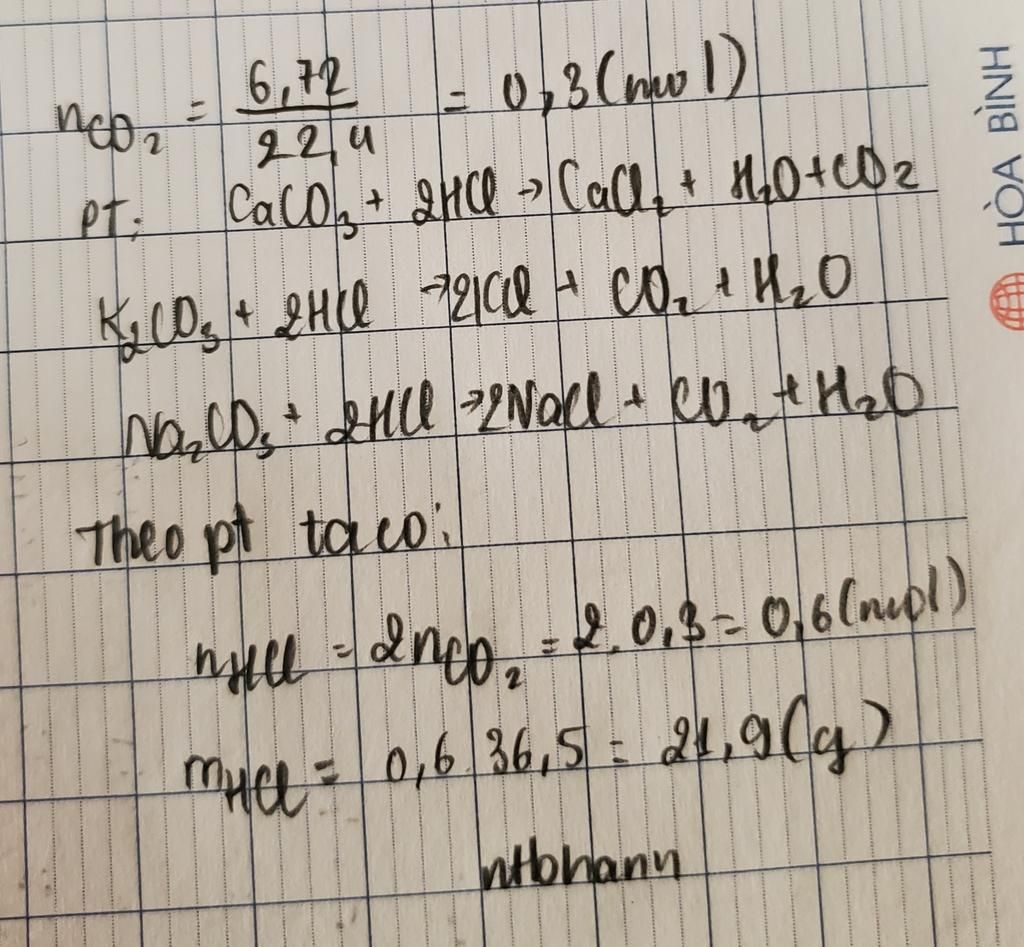 nCO₂ = 6,72 / 22,4 = 0,3 (mol)
pt: CaCO₃ + 2HCl → CaCl₂ + H₂O + CO₂
K₂CO₃ + 2HCl → 2KCl + CO₂ + H₂O
Na₂CO₃ + 2HCl → 2NaCl + CO₂ + H₂O
Theo pt ta co:
nHCl = 2nCO₂ = 2.0,3 = 0,6 (mol)
mHCl = 0,6 36,5 = 21,9 (g)
nHbhann
HÒA BÌNH